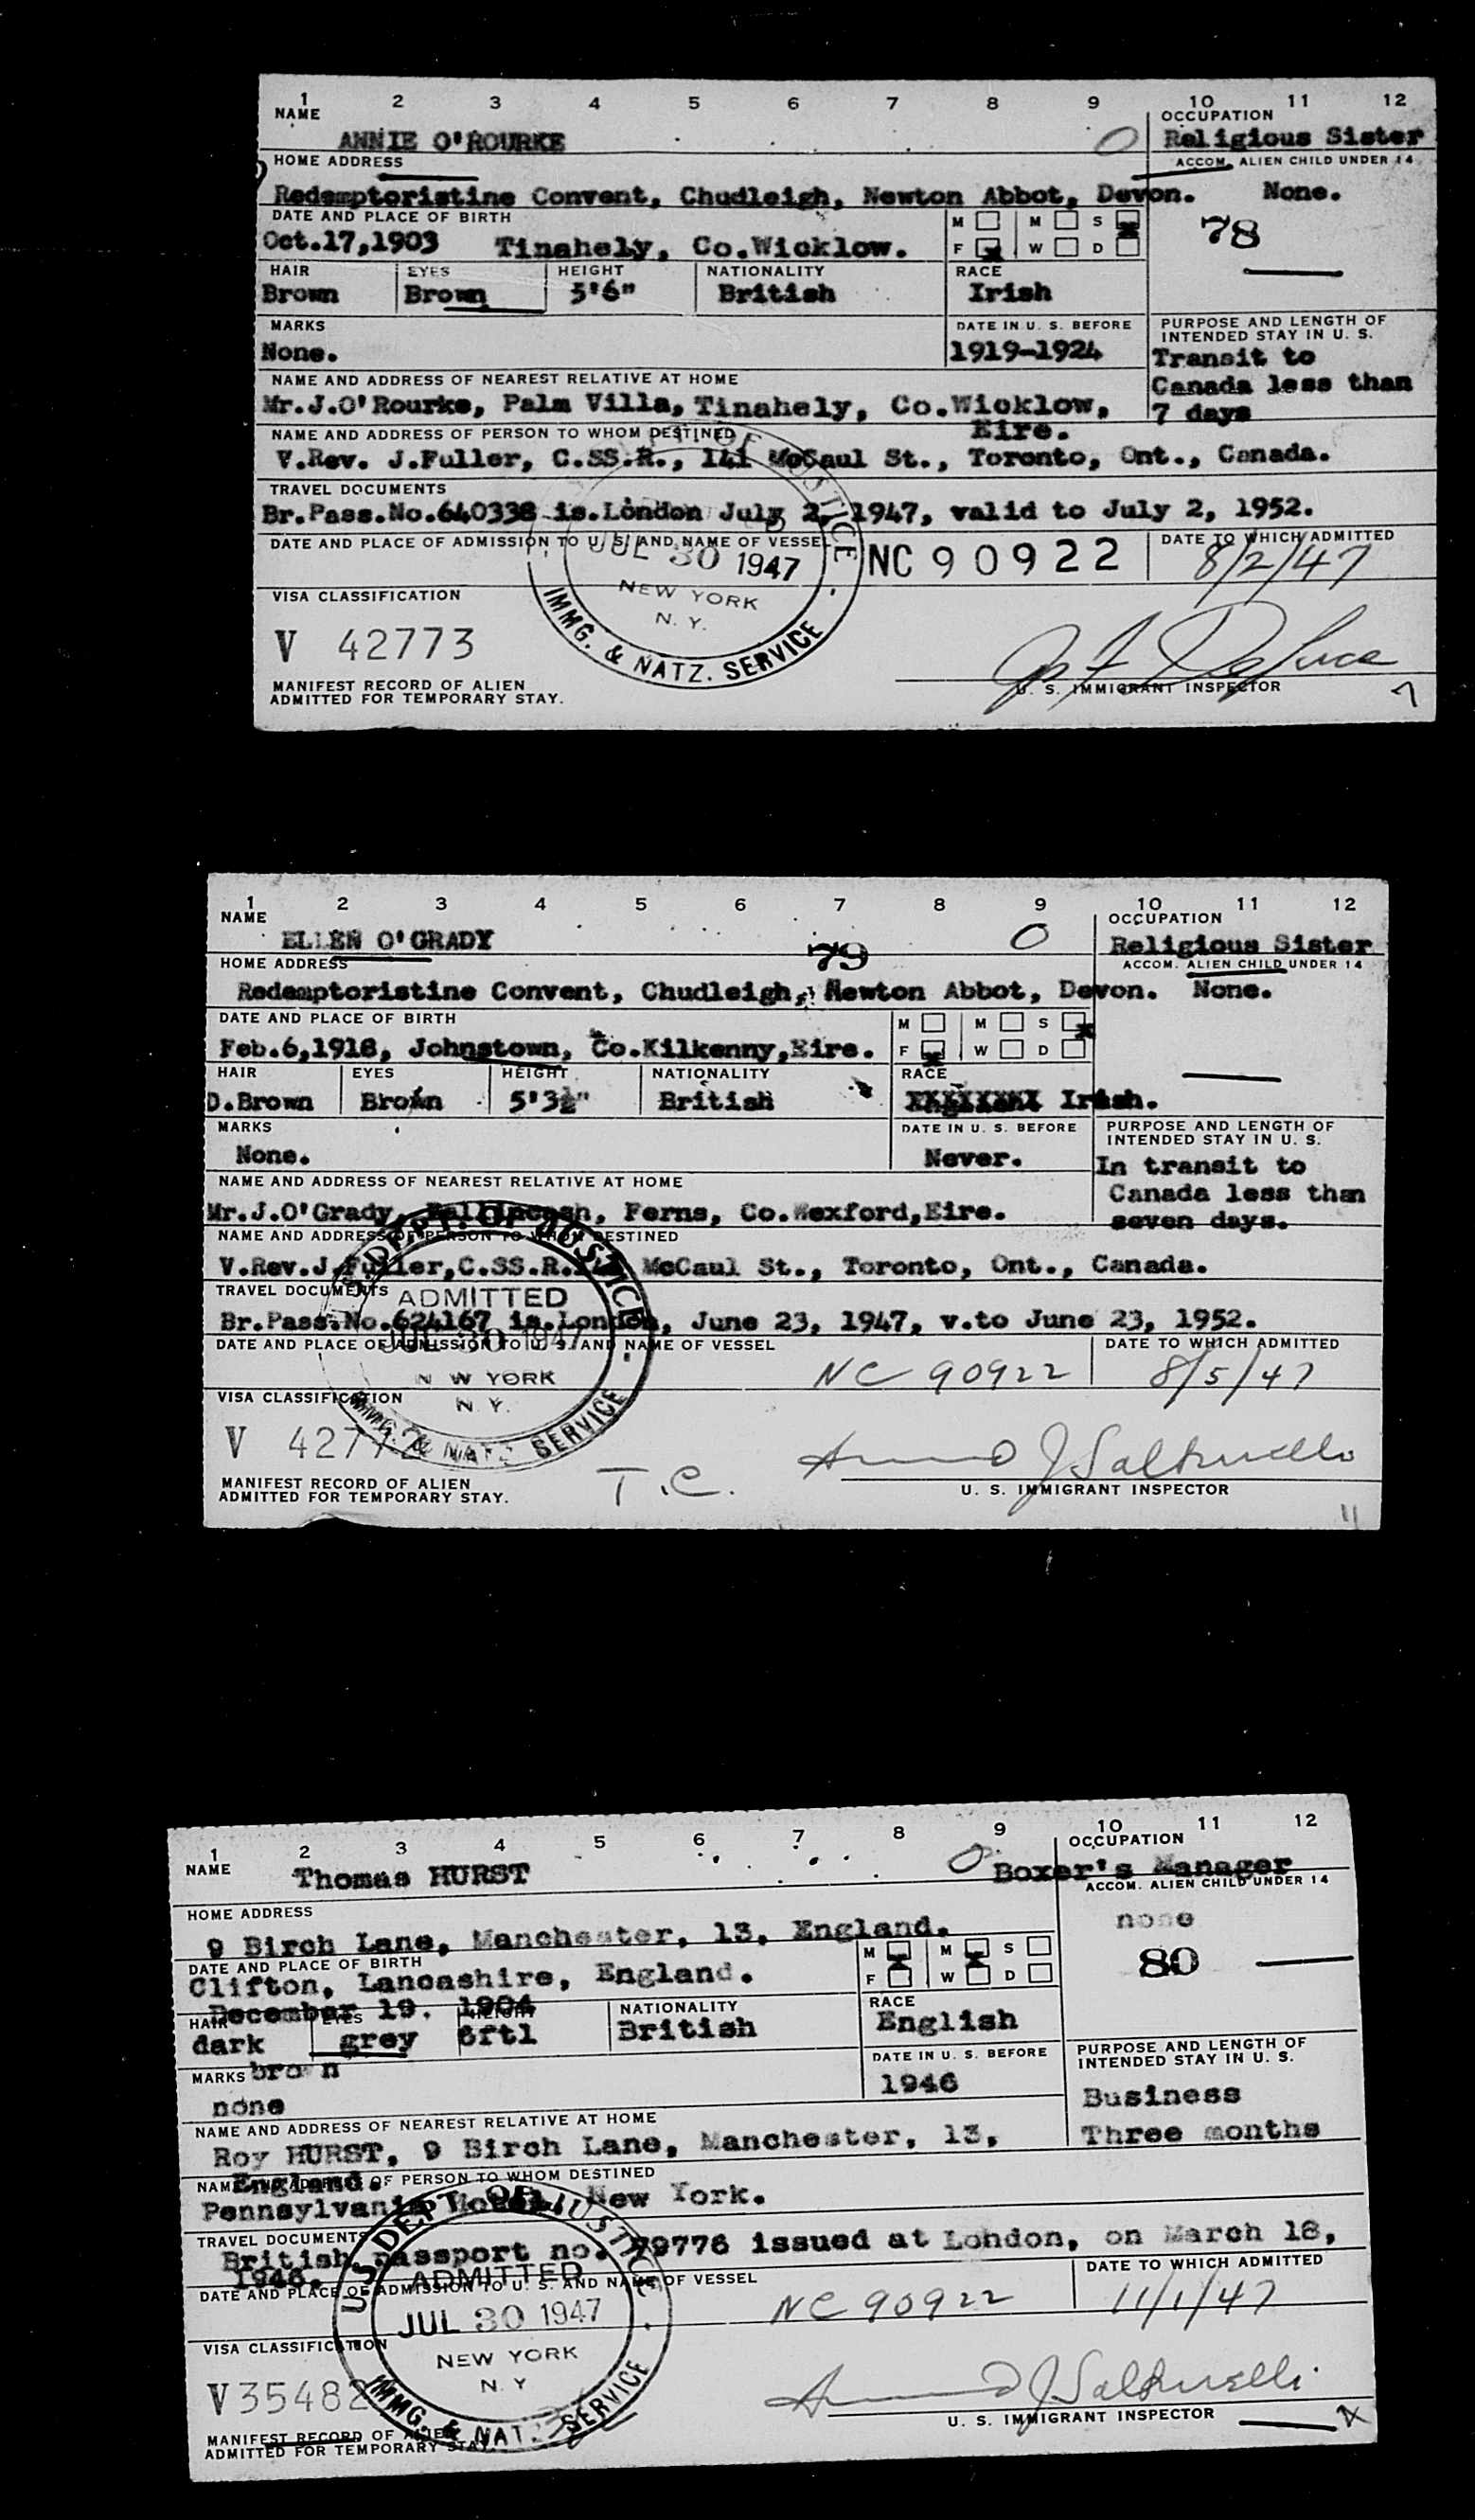 1 2 3 4 5 6 7 8 9 10 11 12
NAME OCCUPATION
ANNIE O'ROURKE 0 Religious Sister
HOME ADDRESS ACCOM. ALIEN CHILD UNDER 14
Redemptoristine Convent, Chudleigh, Newton Abbot, Devon. None.
DATE AND PLACE OF BIRTH M M S 78
Oct.17,1903 Tinahely, Co.Wicklow. F W D
HAIR EYES HEIGHT NATIONALITY RACE
Brown Brown 5'6" British Irish
MARKS DATE IN U. S. BEFORE PURPOSE AND LENGTH OF
INTENDED STAY IN U. S.
None. 1919-1924 Transit to
NAME AND ADDRESS OF NEAREST RELATIVE AT HOME Canada less than
Mr.J.O'Rourke, Palm Villa, Tinahely, Co.Wicklow, 7 days
NAME AND ADDRESS OF PERSON TO WHOM DESTINED Eire.
V.Rev. J.Fuller, C.SS.R., 141 McCaul St., Toronto, Ont., Canada.
TRAVEL DOCUMENTS
Br.Pass.No.640338 is.London July 2, 1947, valid to July 2, 1952.
DATE AND PLACE OF ADMISSION TO U. S. AND NAME OF VESSEL DATE TO WHICH ADMITTED
JUL 30 1947 NC 90922 8/2/47
VISA CLASSIFICATION NEW YORK
N. Y.
V 42773 IMMG. & NATZ. SERVICE
MANIFEST RECORD OF ALIEN U. S. IMMIGRANT INSPECTOR
ADMITTED FOR TEMPORARY STAY.
1 2 3 4 5 6 7 8 9 10 11 12
NAME OCCUPATION
ELLEN O'GRADY 79 0 Religious Sister
HOME ADDRESS ACCOM. ALIEN CHILD UNDER 14
Redemptoristine Convent, Chudleigh, Newton Abbot, Devon. None.
DATE AND PLACE OF BIRTH M M S
Feb.6,1918, Johnstown, Co.Kilkenny,Eire. F W D
HAIR EYES HEIGHT NATIONALITY RACE
D.Brown Brown 5'3½" British Irish.
MARKS DATE IN U. S. BEFORE PURPOSE AND LENGTH OF
INTENDED STAY IN U. S.
None. Never. In transit to
NAME AND ADDRESS OF NEAREST RELATIVE AT HOME Canada less than
Mr.J.O'Grady, Ferns, Co.Wexford,Eire. seven days.
NAME AND ADDRESS OF PERSON TO WHOM DESTINED
V.Rev.J.Fuller,C.SS.R. McCaul St., Toronto, Ont., Canada.
TRAVEL DOCUMENTS ADMITTED
Br.Pass.No.624167 is.London, June 23, 1947, v.to June 23, 1952.
DATE AND PLACE OF ADMISSION TO U. S. AND NAME OF VESSEL DATE TO WHICH ADMITTED
JUL 30 1947 NC 90922 8/5/47
VISA CLASSIFICATION N W YORK
N. Y.
V IMMG. & NATZ SERVICE
MANIFEST RECORD OF ALIEN T.C. U. S. IMMIGRANT INSPECTOR
ADMITTED FOR TEMPORARY STAY.
11
1 2 3 4 5 6 7 8 9 10 11 12
NAME OCCUPATION
Thomas HURST 0 Boxer's Manager
ACCOM. ALIEN CHILD UNDER 14
HOME ADDRESS none
9 Birch Lane, Manchester, 13, England.
DATE AND PLACE OF BIRTH M M S 80
Clifton, Lancashire, England. F W D
December 19. 1904
HAIR EYES HEIGHT NATIONALITY RACE
dark grey 6ft1 British English
brown
MARKS DATE IN U. S. BEFORE PURPOSE AND LENGTH OF
INTENDED STAY IN U. S.
none 1946 Business
NAME AND ADDRESS OF NEAREST RELATIVE AT HOME Three months
Roy HURST, 9 Birch Lane, Manchester, 13,
England.
NAME AND ADDRESS OF PERSON TO WHOM DESTINED
Pennsylvania Hotel, New York.
TRAVEL DOCUMENTS U. S. DEPT. OF JUSTICE
British passport no. 79776 issued at London, on March 18,
1946. ADMITTED
DATE AND PLACE OF ADMISSION TO U. S. AND NAME OF VESSEL DATE TO WHICH ADMITTED
JUL 30 1947 NC 90922 11/1/47
VISA CLASSIFICATION NEW YORK
N. Y
V35482 IMMG. & NAT. SERVICE
MANIFEST RECORD OF ALIEN U. S. IMMIGRANT INSPECTOR
ADMITTED FOR TEMPORARY STAY.